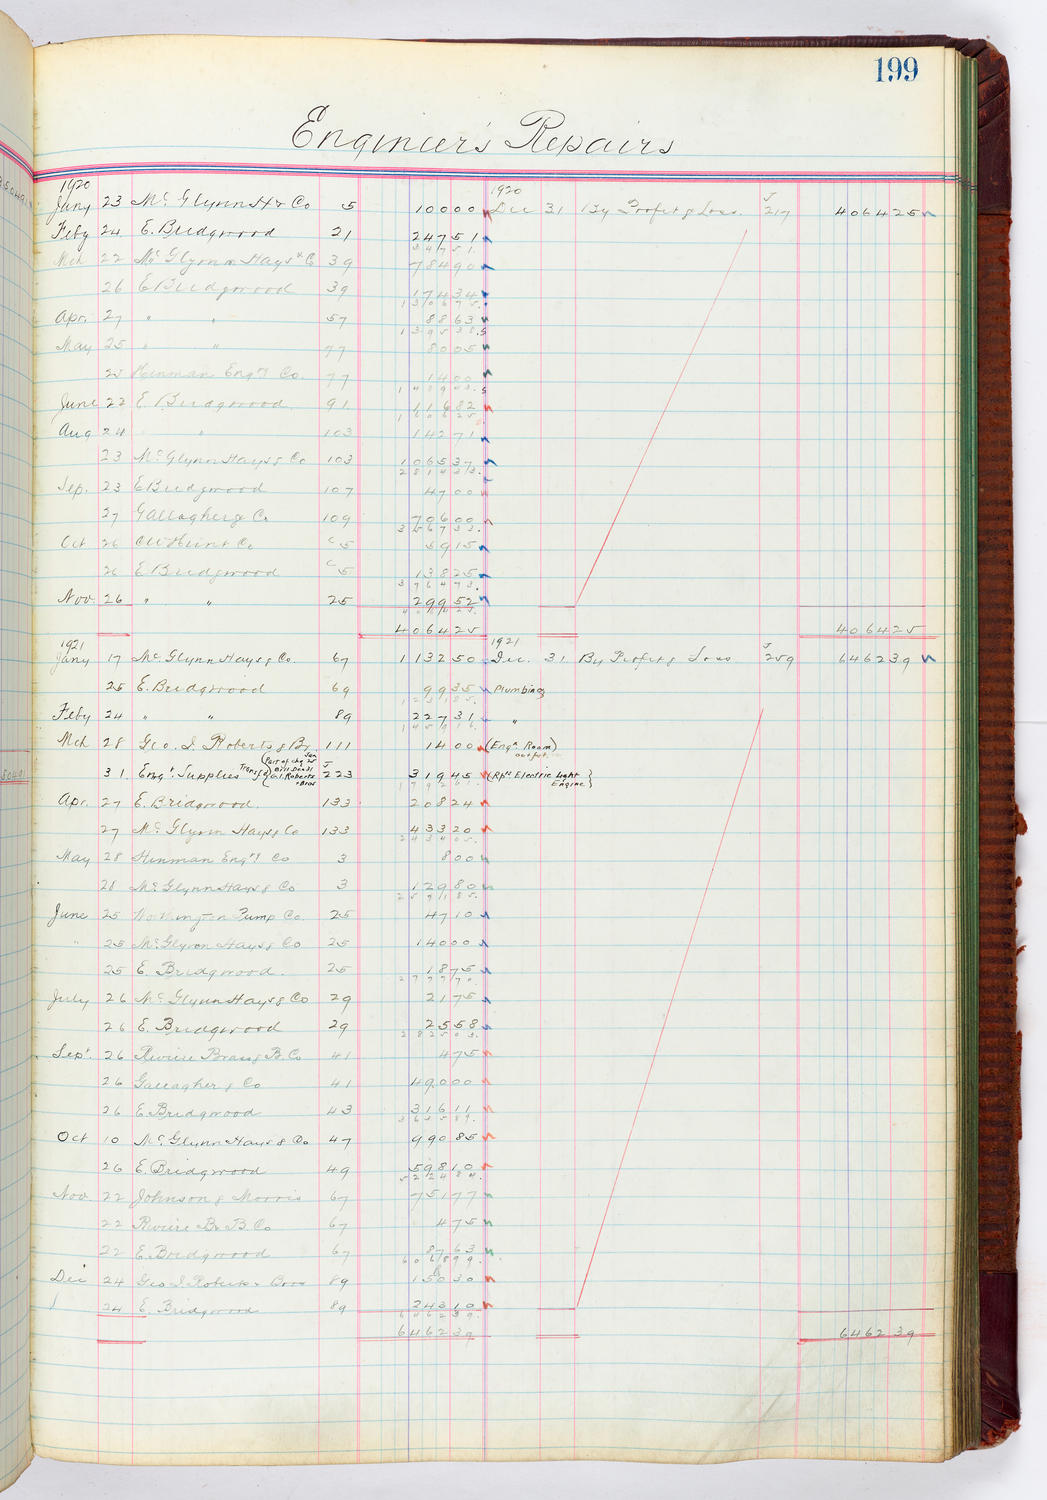 199
Engineer's Repairs
1920 1920
Jany 23 Mc Glynn H & Co 5 10000 Dec 31 By Profit & Loss J 217 406425
Feby 24 E. Bridgwood 21 24751
34751
Mch 22 Mc Glynn Hays & Co 39 78490
26 E Bridgwood 39 17434
130675
Apr. 27 " " 57 8863
139538.5
May 25 " " 77 8005
25 Hinman Engr Co. 77 1400
148943.5
June 22 E. Bridgwood 91 11682
160625
Aug 24 " 103 14271
23 Mc Glynn Hays & Co 103 106537
281433.
Sep. 23 E Bridgwood 107 4700
27 Gallagher & Co 109 70600
356733.
Oct 26 C W Hunt Co C 5 5915
26 E Bridgwood C 5 13825
376473.
Nov. 26 " " 25 29952
406425.
406425 406425
1921 1921
Jany 17 Mc Glynn Hays & Co. 67 113250 Dec. 31. By Profit & Loss J 259 646239
25 E. Bridgwood 69 9935 Plumbing
123185.
Feby 24 " " 89 22731 "
145916.
Mch 28 Geo. I. Roberts & Br. 111 1400 (Engr. Room) outfit.
31. Engr. Supplies Transfd (Part of chg Jan 25 Bill Dec 31 G.I. Roberts & Bros J 223 31945 (Rprs Electric Light Engine)
179261.
Apr. 27 E. Bridgwood. 133 20824
27 Mc Glynn Hays & Co 133 43320
243405.
May 28 Hinman Engr Co 3 800
28 Mc Glynn Hays & Co 3 12980
259185.
June 25 Worthington Pump Co. 25 4710
" 25 Mc Glynn Hays & Co 25 14000
25 E. Bridgwood. 25 1875
277770.
July 26 Mc Glynn Hays & Co 29 2175
26 E. Bridgwood 29 2558
282503.
Sept. 26 Revere Brass & B. Co 41 475
26 Gallagher & Co 41 49000
26 E Bridgwood 43 31611
363589.
Oct 10 Mc Glynn Hays & Co 47 99085
26 E. Bridgwood 49 59810
522484.
Nov. 22 Johnson & Morris 67 75177
22 Revere Br B. Co 67 475
22 E. Bridgwood 67 8763
606899.
Dec 24 Geo I. Roberts & Bros 89 15030
24 E. Bridgwood 89 24310
646239.
646239 646239